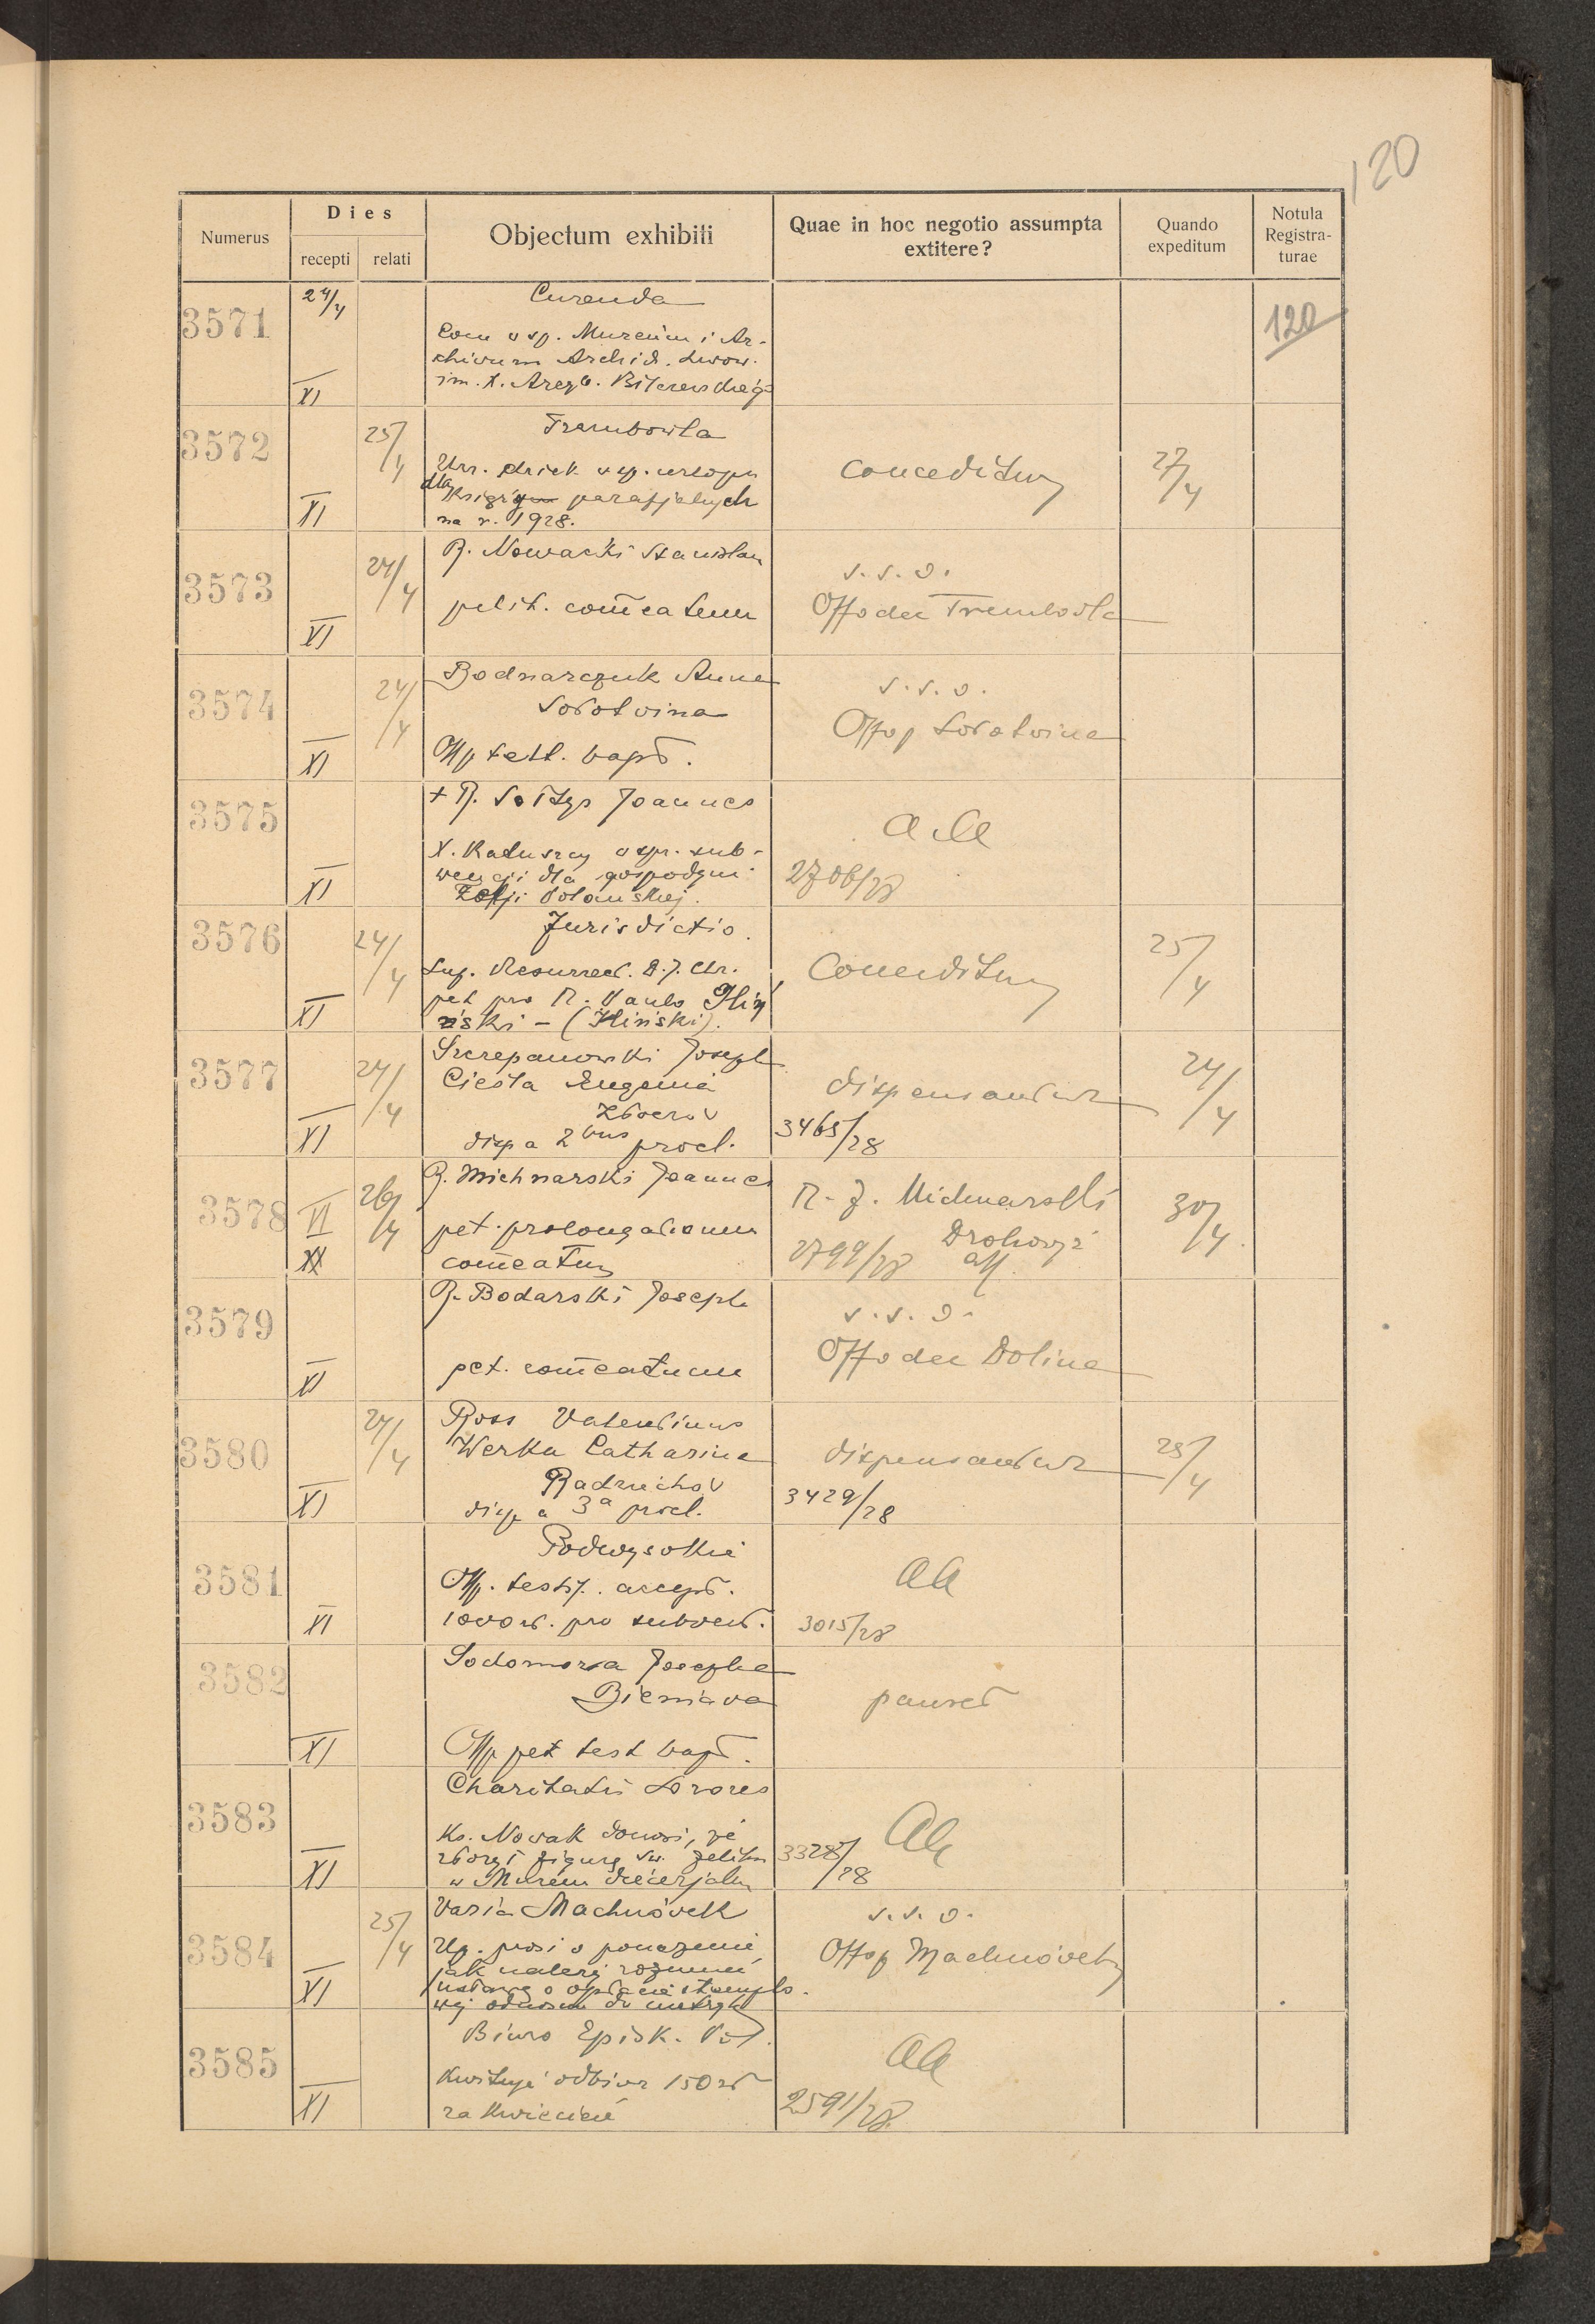 120
Numerus
Dies
recepti relati
Objectum exhibiti
Quae in hoc negotio assumpta
extitere?
Quando
expeditum
Notula
Registra-
turae
3571
24/4
XI
Curenda
w sp. Muzeum i Ar-
chivum Archid. Lwow.
im. X. Arczb. Bilczewskiego
120
3572
25/4
XI
Trembowla
Urz. dziek. w sp. urlopu
dla
parafjalnych
na r. 1928.
conceditur
27/4
3573
24/4
XI
R. Nowacki Stanislau
petit. com̄eatum
s. s. o.
Offo dec Trembowla
3574
24/4
XI
Bodnarczuk Anna
Sołotvina
Off test. bapt.
s. s. o.
Offop Sołotvina
3575
XI
+ R. Sołtys Joannes
X. Ratuszny w spr. sub-
wencji dla gospodyni
Zofji Polańskiej.
a a
2706/28
3576
24/4
XI
Jurisdictio.
Sup. Resurrect. D. J. Chr.
pet pro R. Paulo Iliń
ński - (Iliński).
Conceditur
25/4
3577
24/4
XI
Szczepanowski Joseph
Cieśla Eugenia
Zborov
disp a 2bus procl.
dispensantur
3465/28
24/4
3578
VI
XX
26/4
R. Michnarski Joannes
pet. prolongationem
com̄eatus
R. J. Michnarski
Drohovyż
2799/28 aff.
30/4.
3579
XI
R. Bodarski Joseph
pet. com̄eatum
s. s. o.
Offo dec Dolina
3580
24/4
XI
Ross Valentinus
Werka Catharina
Radziechov
disp a 3a procl.
dispensantur
3429/28
25/4
3581
XI
Podwysokie
Off. testif. accept.
1000 zł. pro subvent.
aa
3015/28
3582
XI
Sodomora Josepha
Bieniava
Off pet test bapt.
3583
XI
Charitatis Sorores
Ks. Nowak donosi, że
złożył figurę św. Feliksa
w Muzeum diecezjalnem
aa
3328/28
3584
25/4
XI
Varia Machnóvek
Up. prosi o pouczenie,
jak należy rozumieć
ustawę o opłacie stemplo-
wej odnośnie do metryk
s. s. o.
Offop Machnóvek
3585
XI
Biuro Episk. Pol.
Kwituje odbiór 150 zł
za kwiecień
aa
2591/28.